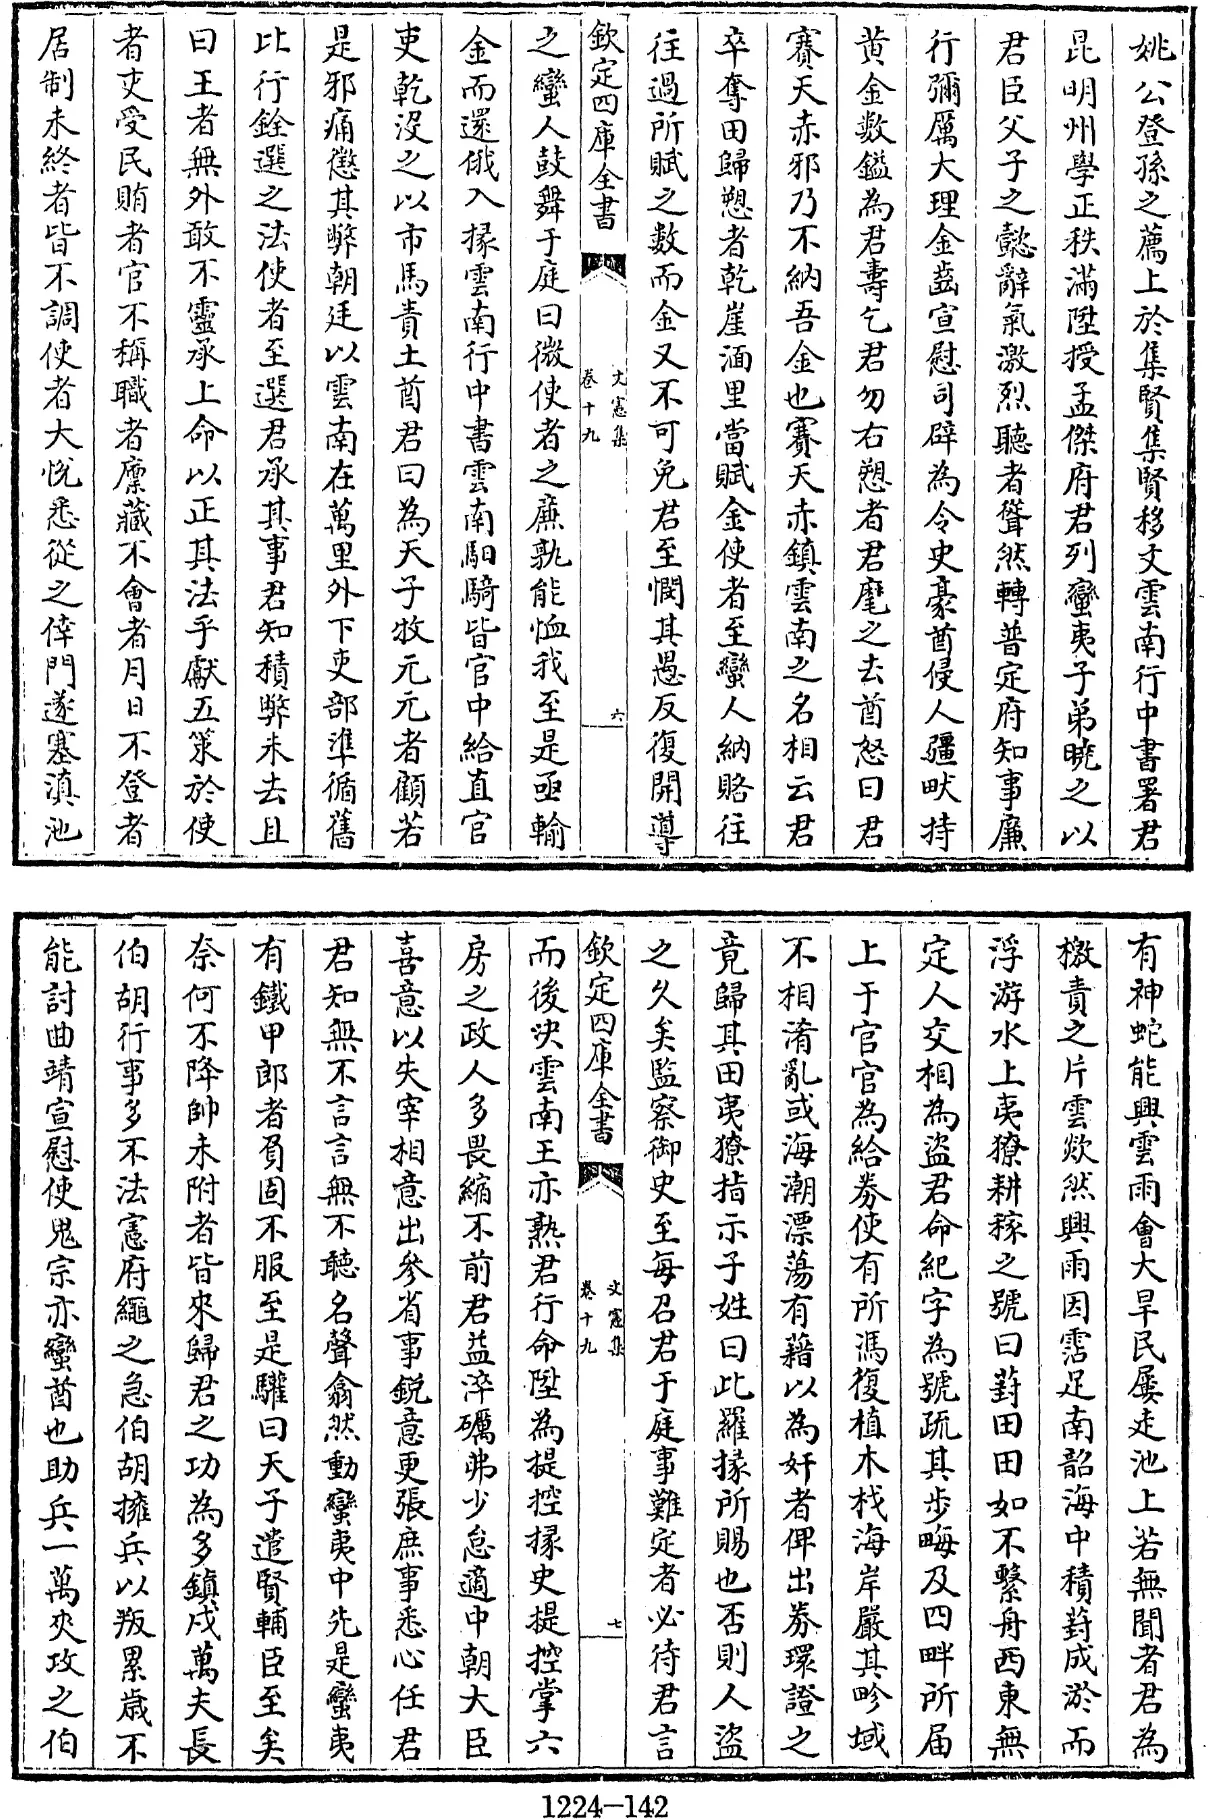 姚公登孫之薦上於集賢集賢移文雲南行中書署君
昆明州學正秩滿陞授孟傑府君列蠻夷子弟曉之以
君臣父子之懿辭氣激烈聽者聳然轉普定府知事廉
行彌厲大理金齒宣慰司辟為令史豪酋侵人疆畎持
黄金數鎰為君壽乞君勿右愬者君麾之去酋怒曰君
賽天赤邪乃不納吾金也賽天赤鎮雲南之名相云君
卒奪田歸愬者乾崖湎里當賦金使者至蠻人納賂往
往過所賦之數而金又不可免君至憫其愚反復開導
欽定四庫全書
文憲集
卷十九
六
之蠻人鼓舞于庭曰微使者之廉孰能恤我至是亟輸
金而還俄入掾雲南行中書雲南馹騎皆官中給直官
吏乾沒之以市馬責土酋君曰為天子牧元元者顧若
是邪痛懲其弊朝廷以雲南在萬里外下吏部準循舊
比行銓選之法使者至選君承其事君知積弊未去且
曰王者無外敢不靈承上命以正其法乎獻五筞於使
者吏受民賄者官不稱職者廪藏不會者月日不登者
居制未終者皆不調使者大悦悉從之倖門遂塞滇池
有神蛇能興雲雨會大旱民屡走池上若無聞者君為
檄責之片雲欻然興雨因霑足南韶海中積葑成淤而
浮游水上夷獠耕稼之號曰葑田田如不繫舟西東無
定人交相為盜君命紀字為號疏其步畮及四畔所届
上于官官為給券使有所馮復植木栈海岸嚴其畛域
不相淆亂或海潮漂蕩有藉以為奸者俾出券環證之
竟歸其田夷獠指示子姓曰此羅掾所賜也否則人盜
之久矣監察御史至每召君于庭事難定者必待君言
欽定四庫全書
文憲集
卷十九
七
而後决雲南王亦熟君行命陞為提控掾史提控掌六
房之政人多畏縮不前君益淬礪弗少怠適中朝大臣
喜意以失宰相意出參省事鋭意更張庶事悉心任君
君知無不言言無不聽名聲翕然動蠻夷中先是蠻夷
有鐵甲郎者負固不服至是驩曰天子遣賢輔臣至矣
奈何不降帥未附者皆來歸君之功為多鎮戍萬夫長
伯胡行事多不法憲府繩之急伯胡擁兵以叛累嵗不
能討曲靖宣慰使鬼宗亦蠻酋也助兵一萬夾攻之伯
1224—142